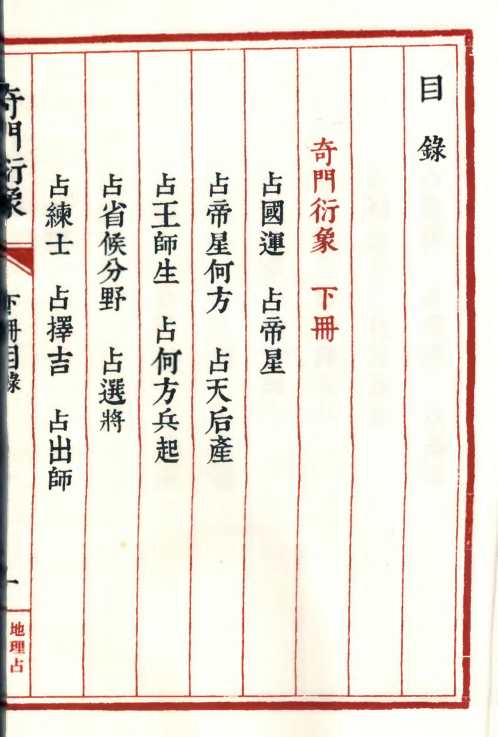 目錄
奇門衍象 下冊
占國運 占帝星
占帝星何方 占天后產
占王師生 占何方兵起
占省候分野 占選將
占練士 占擇吉 占出師
奇門衍象
下冊目錄
一
地理占